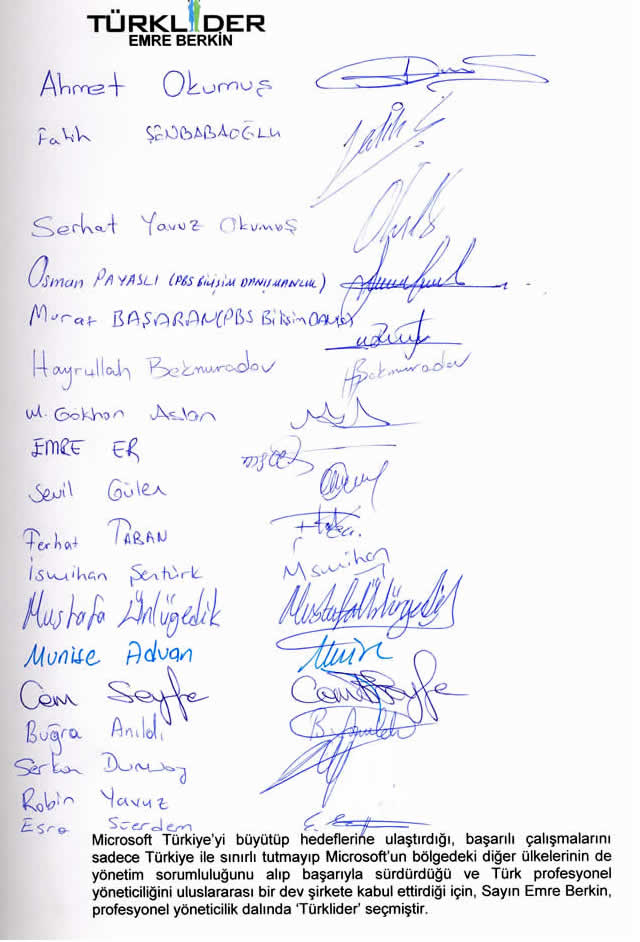 TÜRKLİDER
EMRE BERKİN
Ahmet Okumuş
Fatih ŞENBABAOĞLU
Serhat Yavuz Okumuş
Osman PAYASLI (PBS BİLİŞİM DANIŞMANLIK)
Murat BAŞARAN (PBS Bilişim DANIŞ)
Hayrullah Bekmuradov HBekmuradov
M. Gökhan Aslan
EMRE ER
Sevil Güler
Ferhat TABAN
İsmihan Şentürk
Mustafa Ünlügedik
Munise Advan
Cem Seyfe Cem Seyfe
Buğra Anıldı
Serkan
Robin Yavuz
Esra
Microsoft Türkiye'yi büyütüp hedeflerine ulaştırdığı, başarılı çalışmalarını
sadece Türkiye ile sınırlı tutmayıp Microsoft'un bölgedeki diğer ülkelerinin de
yönetim sorumluluğunu alıp başarıyla sürdürdüğü ve Türk profesyonel
yöneticiliğini uluslararası bir dev şirkete kabul ettirdiği için, Sayın Emre Berkin,
profesyonel yöneticilik dalında 'Türklider' seçmiştir.